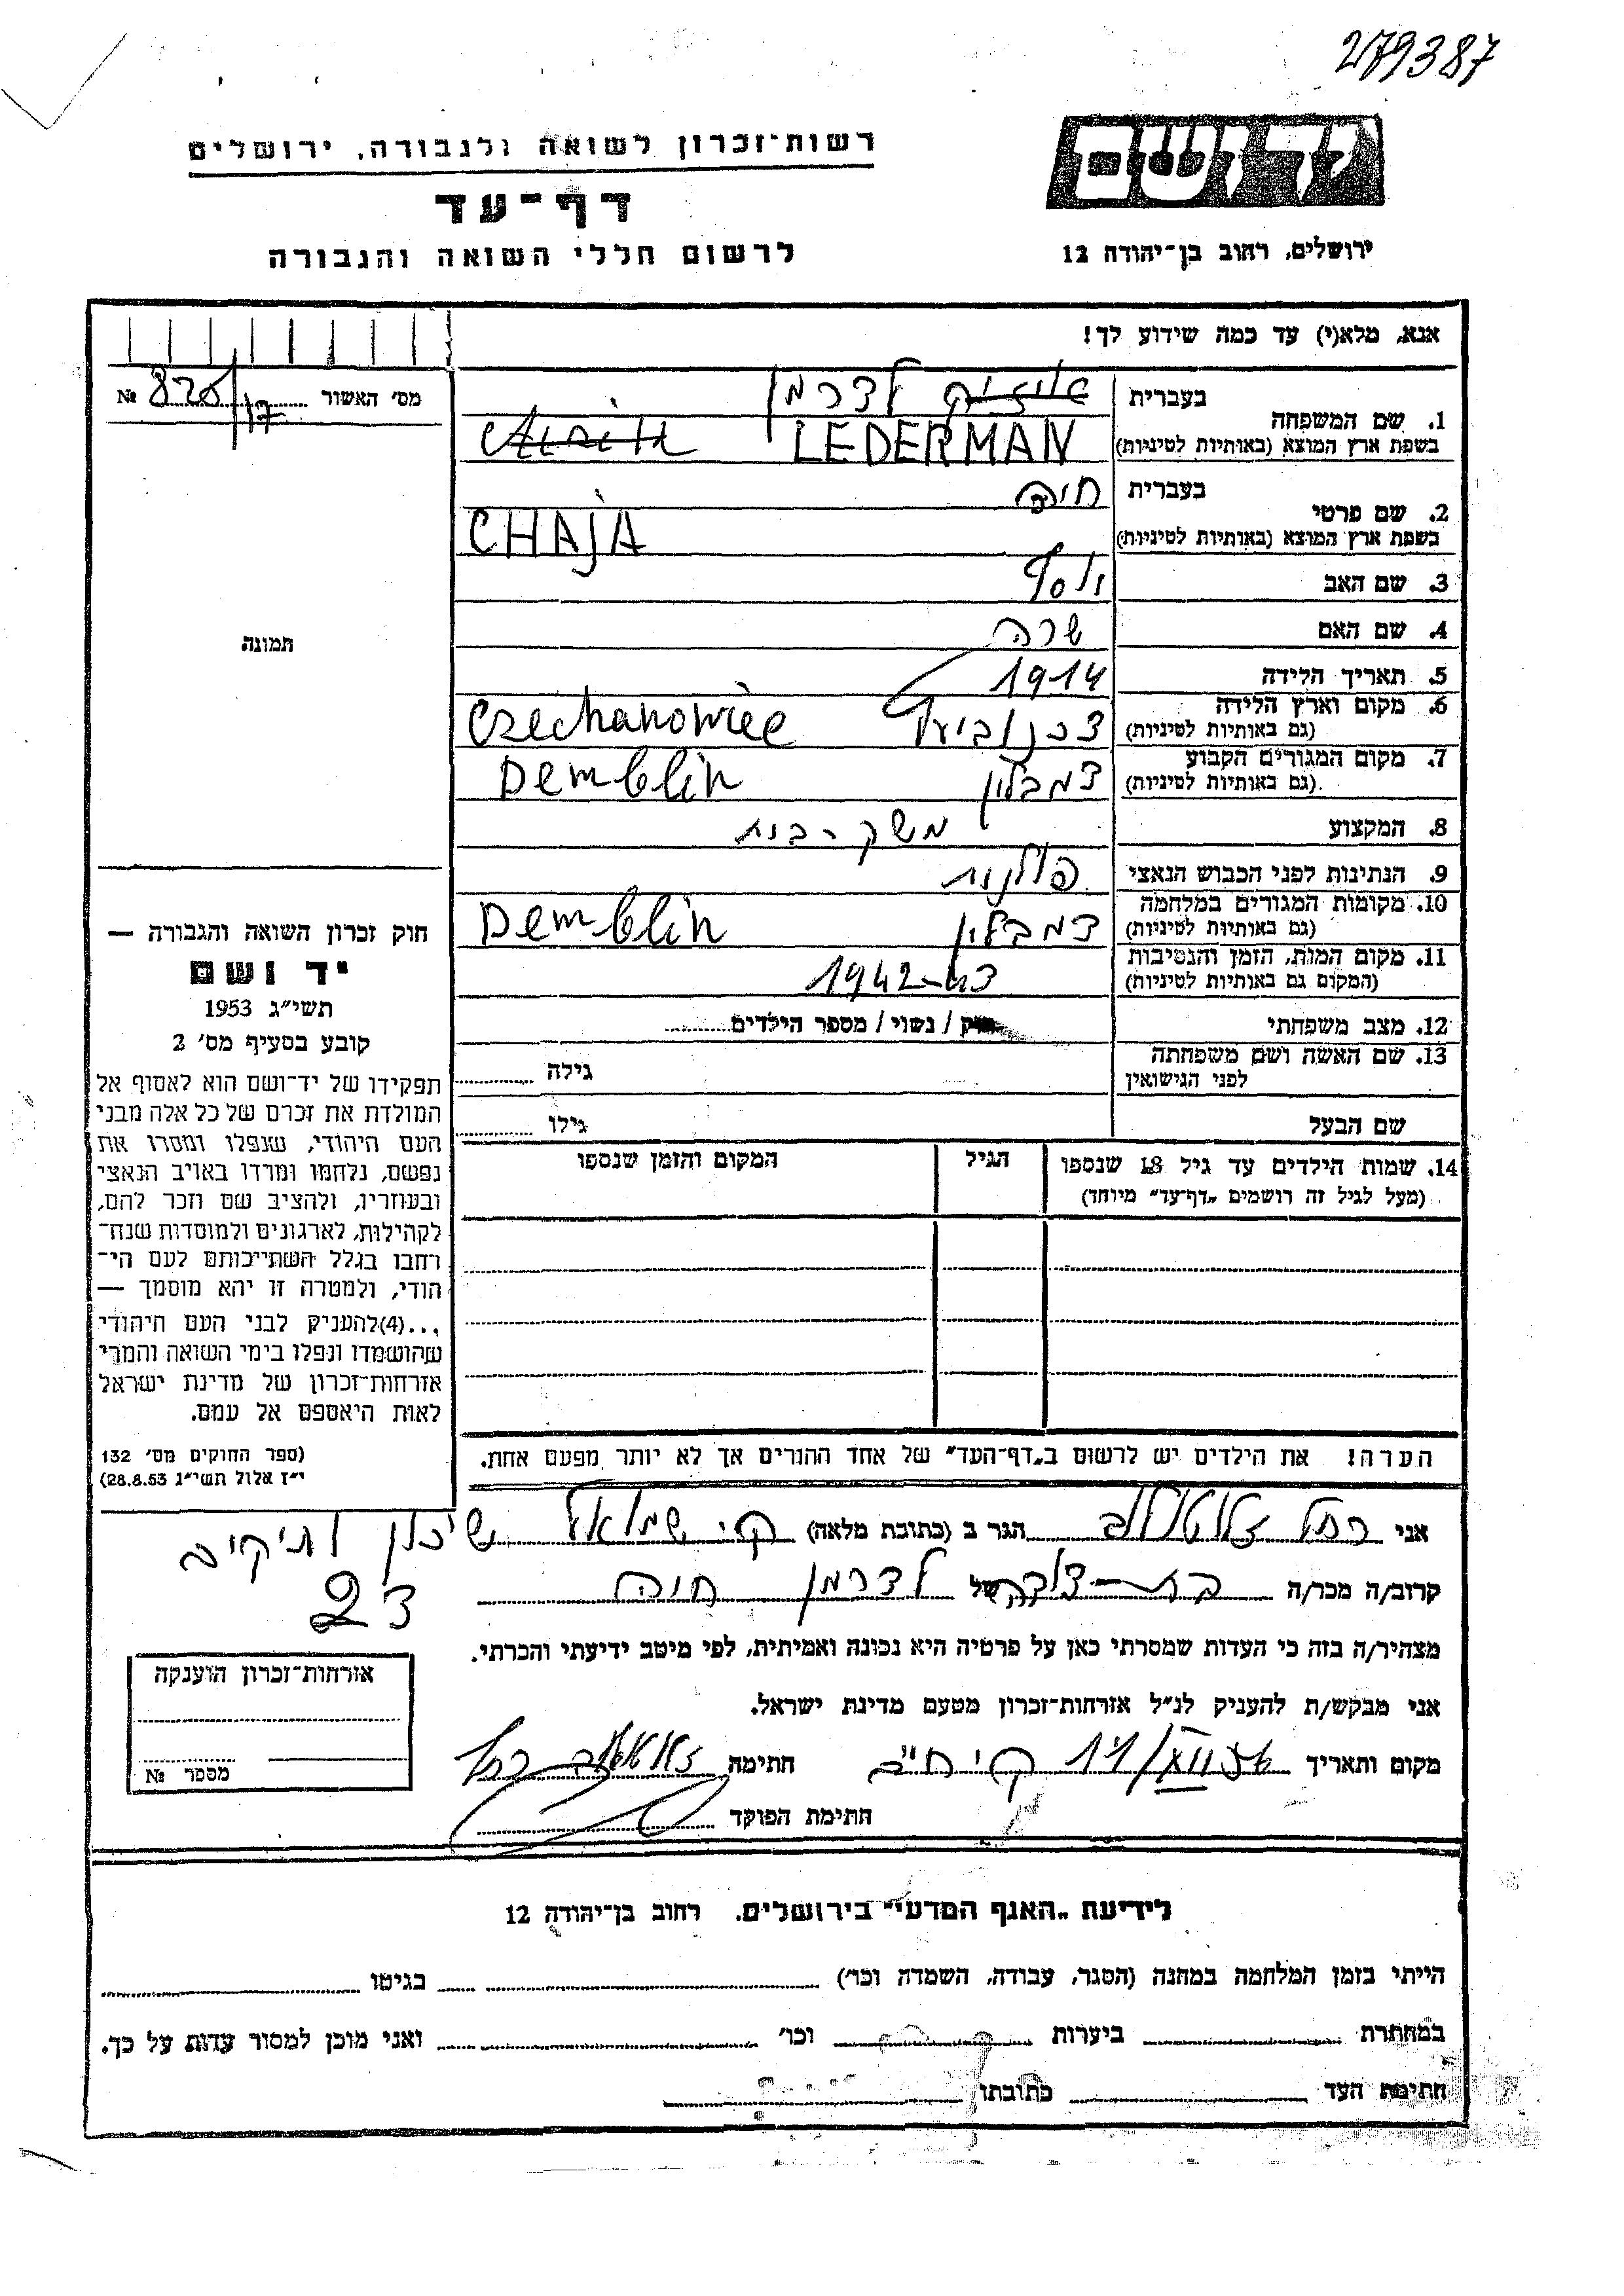 279387
רשות־זכרון לשואה ולגבורה, ירושלים
דף־עד
לרשום חללי השואה והגבורה
יד ושם
ירושלים, רחוב בן־יהודה 12
אנא, מלא(י) עד כמה שידוע לך!
מס׳ האשור № 828/17
1. שם המשפחה
בעברית לדרמן
בשפת ארץ המוצא (באותיות לטיניות) LEDERMAN
2. שם פרטי
בעברית חיה
בשפת ארץ המוצא (באותיות לטיניות) CHAJA
3. שם האב יוסף
4. שם האם שרה
5. תאריך הלידה 1914
6. מקום וארץ הלידה
(גם באותיות לטיניות) Czechanowiec
7. מקום המגורים הקבוע
(גם באותיות לטיניות) דמבלין Demblin
8. המקצוע משק-בית
9. הנתינות לפני הכבוש הנאצי פולנית
10. מקומות המגורים במלחמה
(גם באותיות לטיניות) דמבלין Demblin
11. מקום המות, הזמן והנסיבות
(המקום גם באותיות לטיניות) 1942-43
12. מצב משפחתי רווק / נשוי / מספר הילדים
13. שם האשה ושם משפחתה
לפני הנישואין
גילה
שם הבעל
גילו
14. שמות הילדים עד גיל 18 שנספו
(מעל לגיל זה רושמים „דף־עד״ מיוחד)
הגיל
המקום והזמן שנספו
הערה! את הילדים יש לרשום ב„דף־העד״ של אחד ההורים אך לא יותר מפעם אחת.
תמונה
חוק זכרון השואה והגבורה —
יד ושם
תשי״ג 1953
קובע בסעיף מס׳ 2
תפקידו של יד־ושם הוא לאסוף אל
המולדת את זכרם של כל אלה מבני
העם היהודי, שנפלו ומסרו את
נפשם, נלחמו ומרדו באויב הנאצי
ובעוזריו, ולהציב שם וזכר להם,
לקהילות, לארגונים ולמוסדות שנח־
רבו בגלל השתייכותם לעם הי־
הודי, ולמטרה זו יהא מוסמך —
...(4)להעניק לבני העם היהודי
שהושמדו ונפלו בימי השואה והמרי
אזרחות־זכרון של מדינת ישראל
לאות היאספם אל עמם.
(ספר החוקים מס׳ 132
י״ז אלול תשי״ג 28.8.53)
אני רחל הגר ב (כתובת מלאה) קר׳ שמואל שיכון ותיקים
23
קרוב/ה מכר/ה בת-דודה של לדרמן חיה
מצהיר/ה בזה כי העדות שמסרתי כאן על פרטיה היא נכונה ואמיתית, לפי מיטב ידיעתי והכרתי.
אני מבקש/ת להעניק לנ״ל אזרחות־זכרון מטעם מדינת ישראל.
מקום ותאריך קר׳ חתימה רחל
חתימת הפוקד
אזרחות־זכרון הוענקה
מספר №
לידיעת „האגף המדעי״ בירושלים, רחוב בן־יהודה 12
הייתי בזמן המלחמה במחנה (הסגר, עבודה, השמדה וכו׳) בגיטו
במחתרת ביערות וכו׳ ואני מוכן למסור עדות על כך.
חתימת העד כתובתו